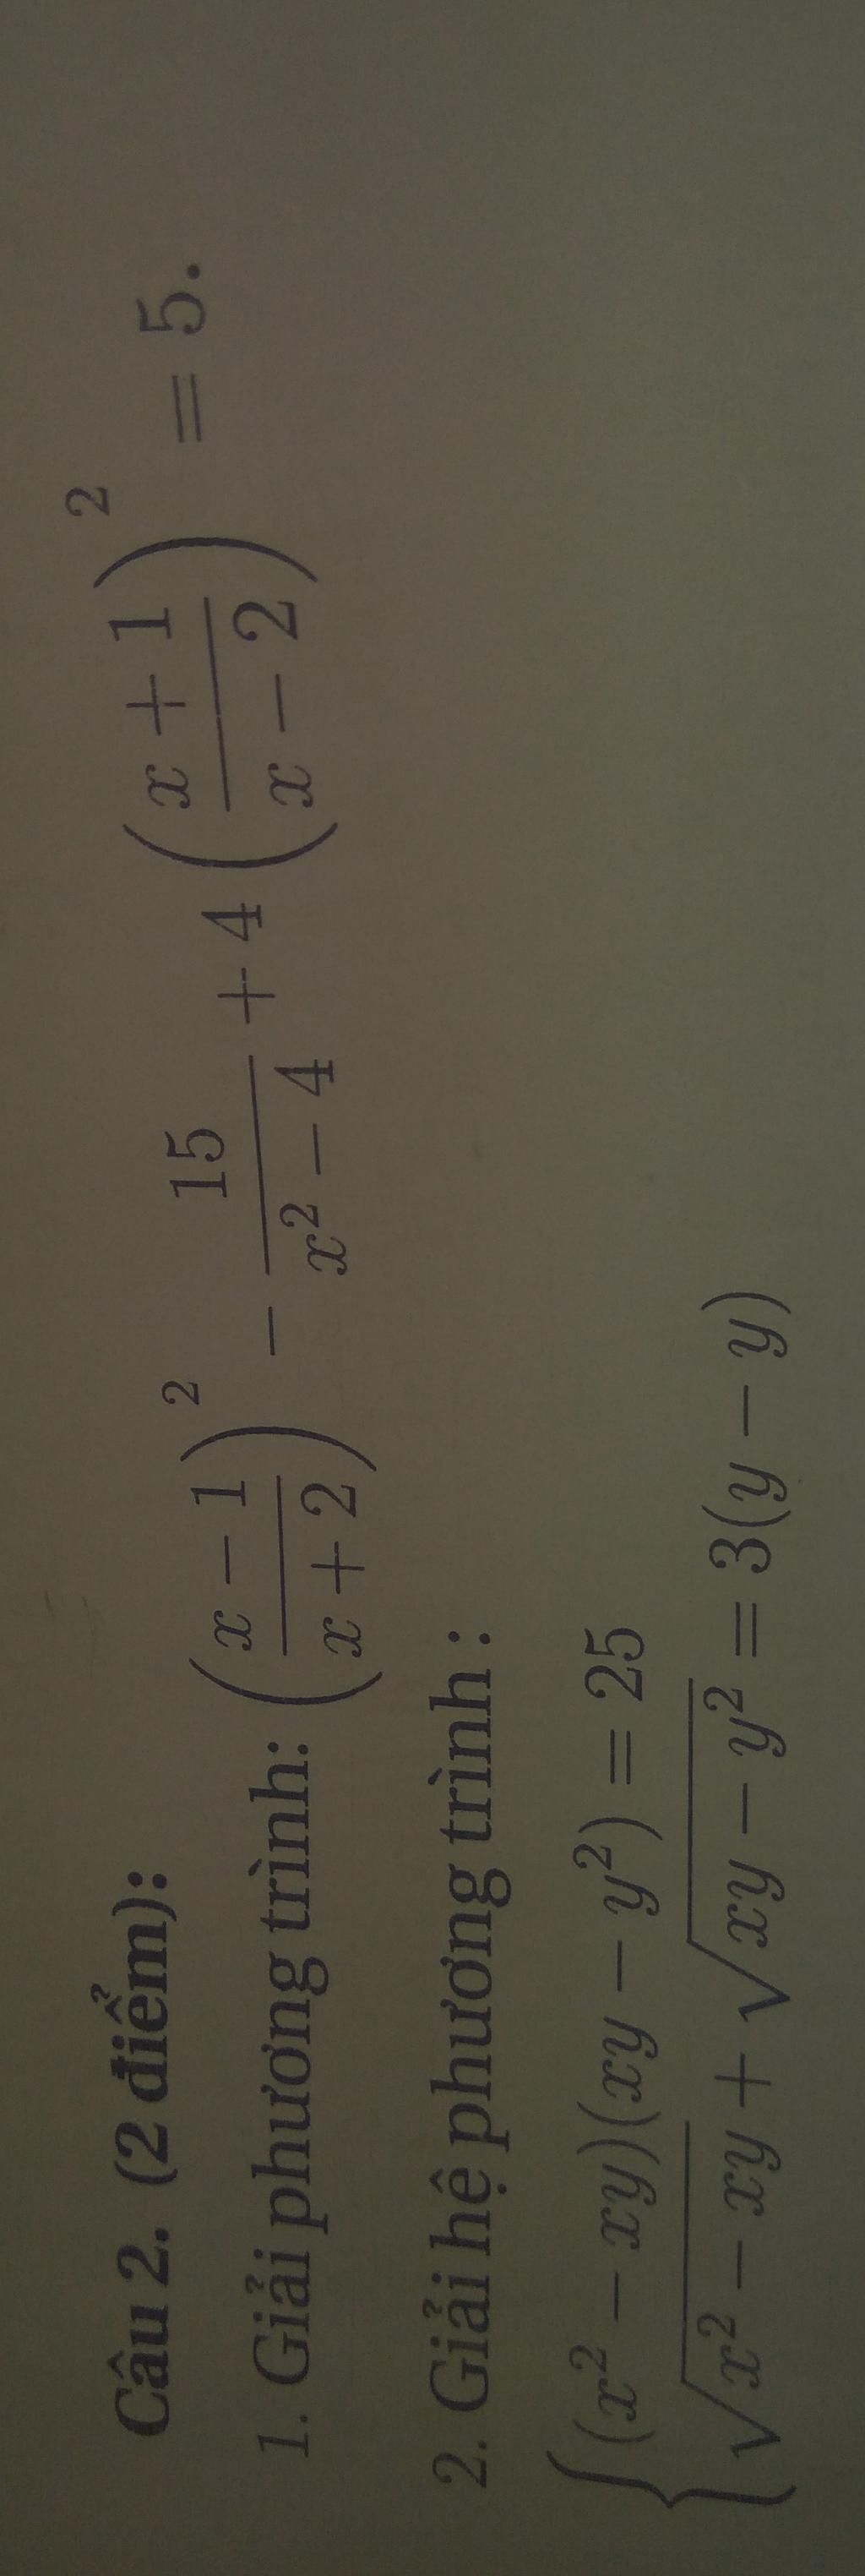 Câu 2. (2 điểm):
1. Giải phương trình: $\left(\frac{x-1}{x+2}\right)^2 - \frac{15}{x^2-4} + 4\left(\frac{x+1}{x-2}\right)^2 = 5.$
2. Giải hệ phương trình :
$\begin{cases} (x^2 - xy)(xy - y^2) = 25 \\ \sqrt{x^2 - xy} + \sqrt{xy - y^2} = 3(y - y) \end{cases}$